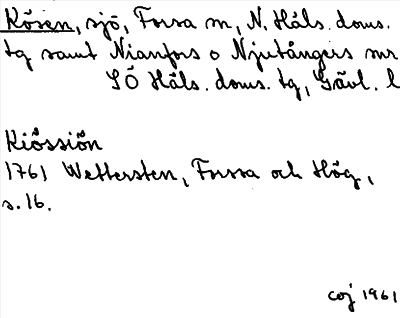 Kösen, sjö, Forsa sn, N. Häls. doms.
tg samt Nianfors o Njutångers snr
SÖ Häls. doms. tg, Gävl. l
Kiössiön
1761 Wettersten, Forssa och Hög,
s. 16.
coj 1961